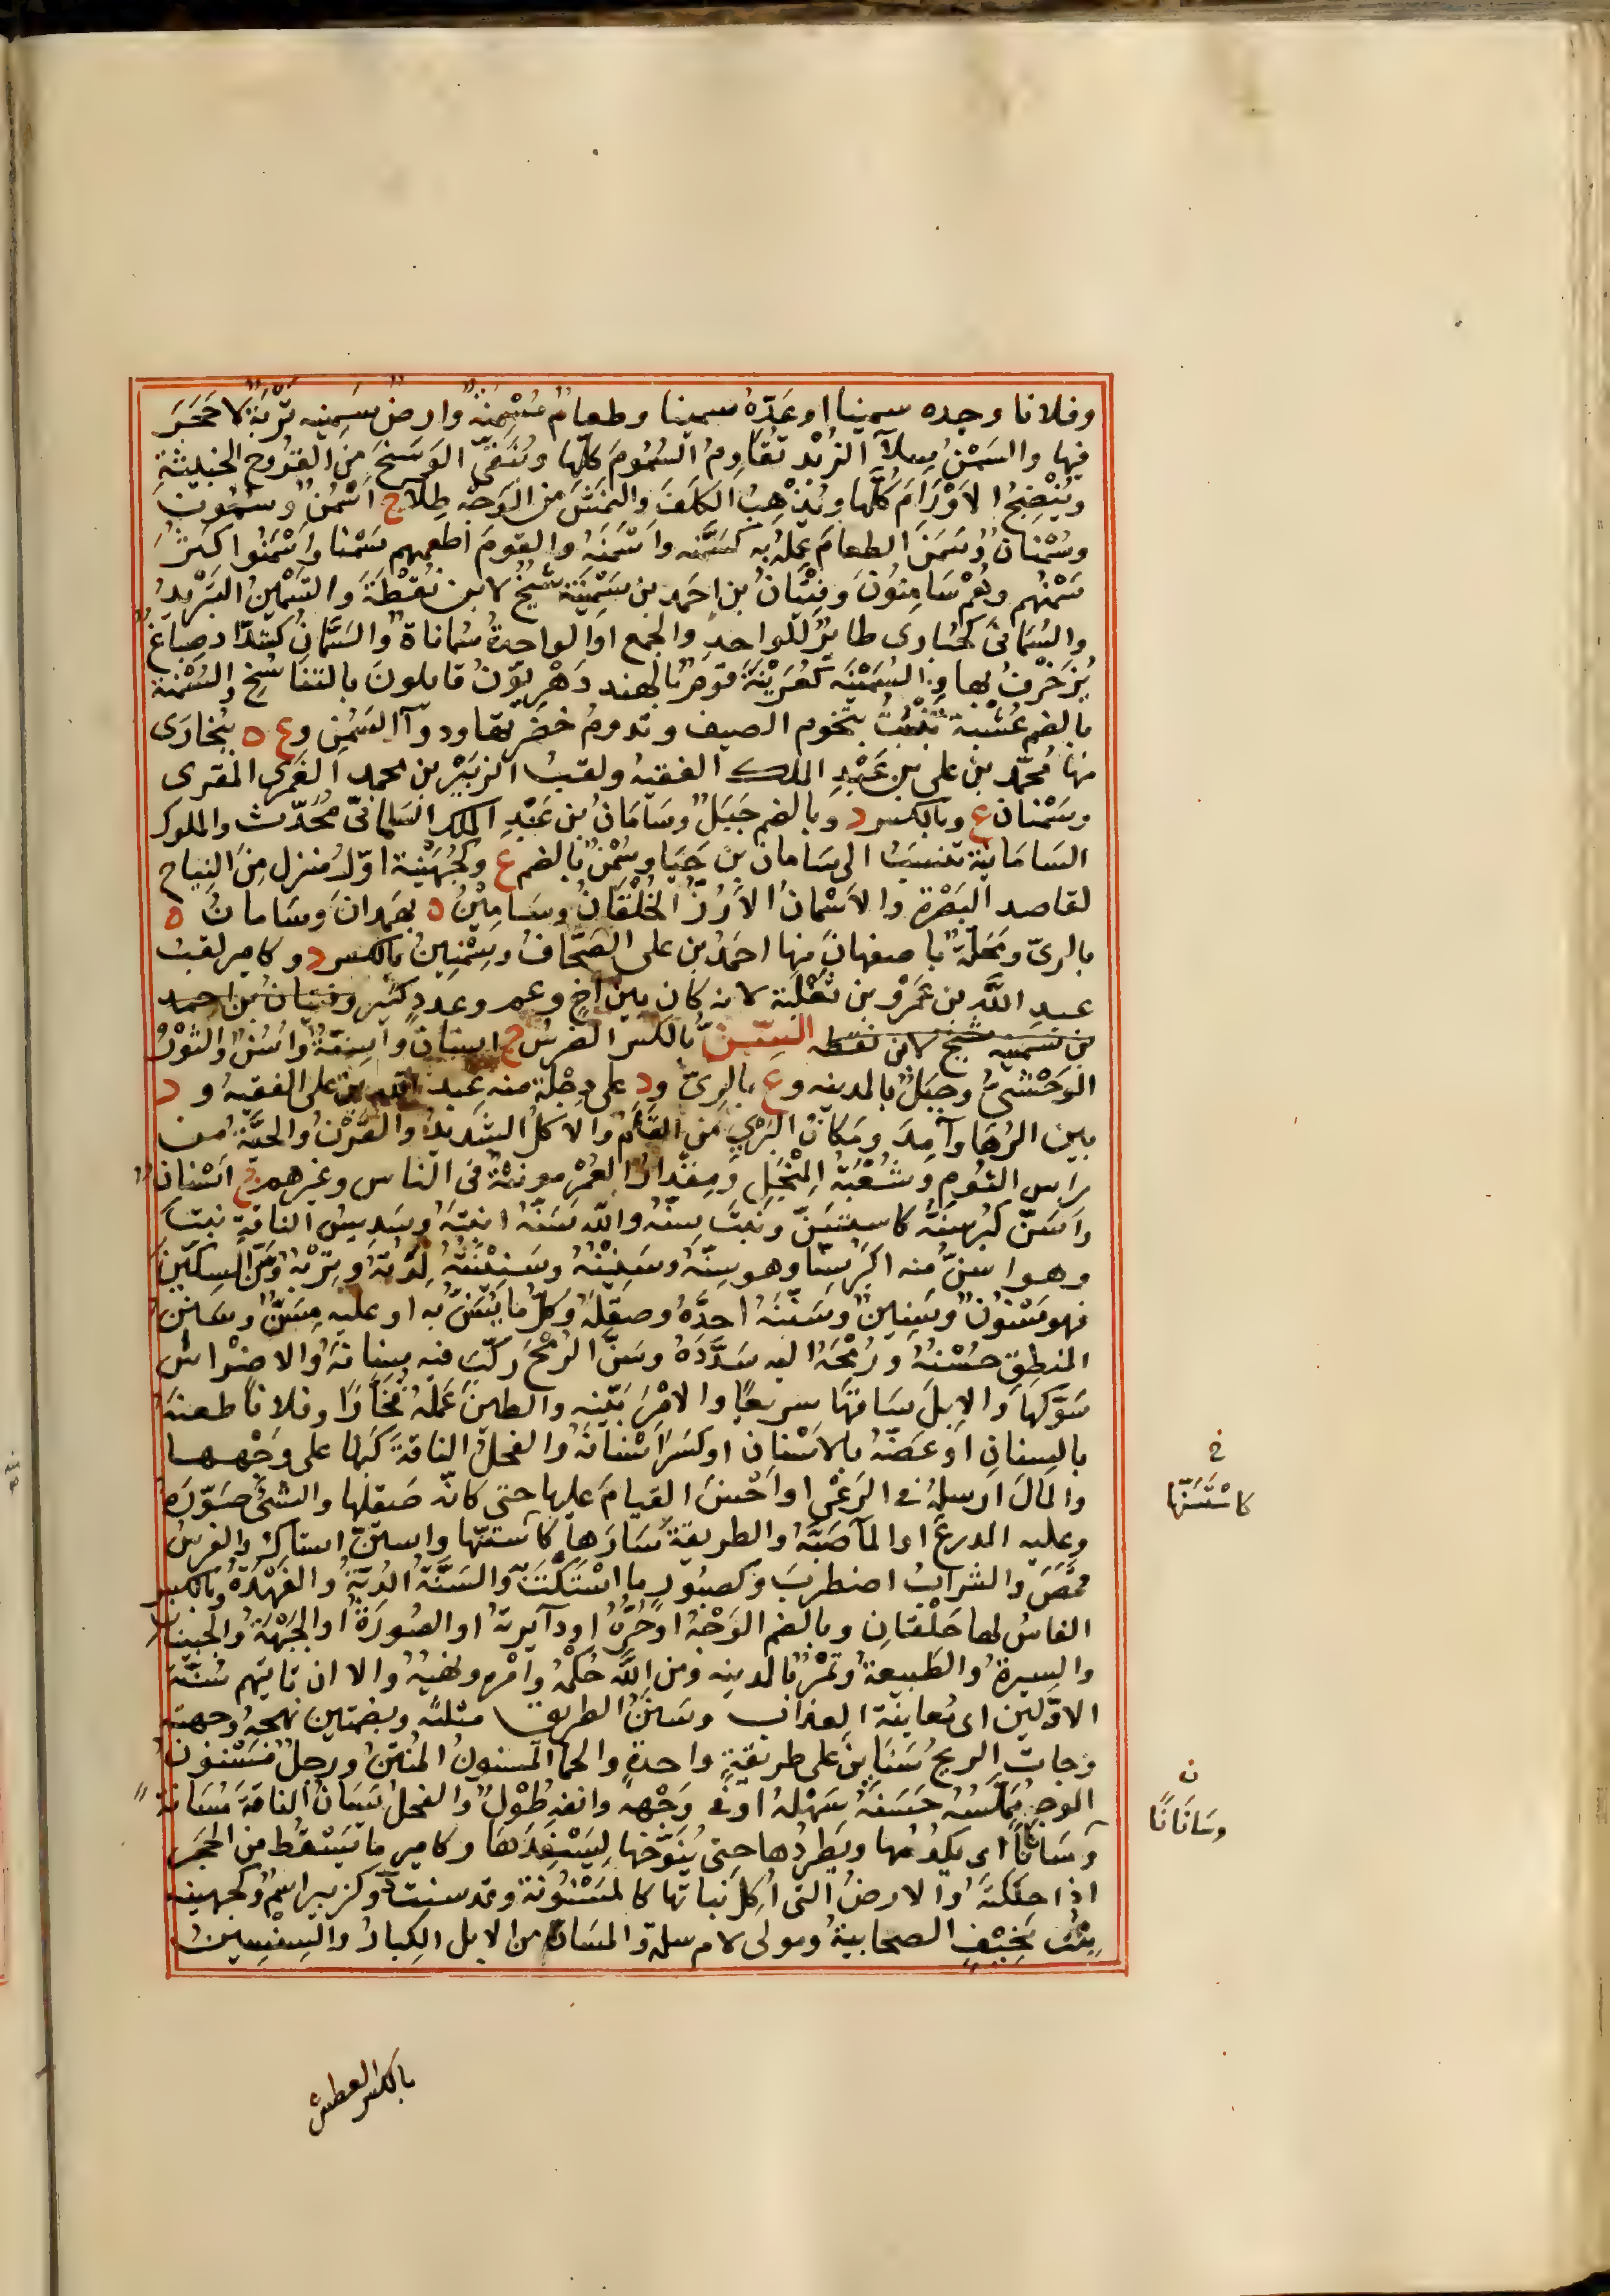 وفلانا وجده سمينا او عَدَّهُ سمينا وطعامٌ مَسْمَنَةٌ وارضٌ سَمِينه تَرِبَةٌ لا حَجَرَ
فيها والسَمْنُ سِلآ الزُبْد تُقَاوِمُ السُمُومَ كلَّها وتُنَقّى الوَسَخَ مِنَ القُرُوحِ الخبيثةِ
وتُنْضِجُ الاَوْرَامَ كُلَّها ويُذْهِبُ الكَلَفَ والنَمَشَ من الوَجْهِ طِلاً ج اَسْمُنٌ وسُمُونٌ
وسُمْنانٌ وسَمَنَ الطعامَ عَمِلَهُ به كسَمَّنَه واَسْمَنَهُ والقومَ اَطعمهم سَمْنا واَسْمَنُوا كَثُرَ
سَمْنُهم وهُمْ سَامِنُونَ وفِتْيَانُ بن احمَد بن سَمِنِيَّة شيخٌ لابن نُقطَةَ والتَسْمِينُ التَبْريدُ
والسُمَانَى كحُبَارى طايرٌ للواحد والجمع او الواحدةُ سُماناةٌ والسَمَّانُ كشَدَّاد صباغٌ
يُزَخْرَفُ بها والسُمَنِيَّه كعُرَيْنَة قومٌ بالهند دَهْرِيّونَ قايلونَ بالتناسُخِ والسُمْنَة
بالضم عُشْبَة تَنْبُتُ بنجوم الصيف وتدومُ خضرتها ودوآ السَمَنِ وع ه ببُخارَى
منها مُحمّد بن على بن عَبْدِ الملك الفقيه ولقبُ الزُبَيْرِ بن محمد العُمَرِىّ المقرى
وسَمْنان ع وبالكسر د وبالضم جَبَلٌ وسَامَانُ بن عَبْدِ الملك السَامانىّ مُحَدّث والملوك
السَامَانية تنتسبُ الى سَامان بن حَيَا وسُمْنٌ بالضم ع وكجُهَيْنَة اوّلُ منزل مِنَ النِباج
لقاصد البَصْرة والاَسْمانُ الاُزُرُ الخُلْقَانُ وسَامِيْنُ ه بهَمَدانَ وسَامانُ ه
بالرىّ ومَحَلَّةٌ باصفهانَ منها احمَدُ بن على الصَحَّافُ وسِمْنِينُ بالكسر د وكامير لقبُ
عبدِ اللّهِ بن عَمْرِو بن ثَعْلَبة لانه كان بين اَخٍ وعم وعَدَدٍ كثير وفتيانُ بن احمد
بن سمنيه شيخ لابن نقطه السِّنُّ بالكسر الضِرْسُ ج اسنانٌ واَسِنَّةٌ واَسُنٌّ والثَوْرُ
الوَحْشِىُّ وجَبَلٌ بالمدينه وع بالرىّ ود على دِجْلَة منه عبد اللّه بن على الفقيهُ و د
بين الرُهَا وآمِدَ ومَكانُ البَرْىِ مِن القَلَمِ والاكلُ الشديدُ والقَرْنُ والحَبَّةُ من
رَاسِ الثُومِ وشُعْبَةُ المِنْجَلِ ومِقدارُ العُمْرِ مونثةٌ فى الناس وغيرهم ج اَسْنانٌ
واَسَنَّ كَبُرَ سِنُّه كاستَسَنَّ ونَبَتَ سِنُّه واللّه سِنَّهُ انبتَهُ وسَدِيسُ الناقةِ نبتَ
وهو اسنُّ منه اكبرُ سِنًّا وهو سِنُّهُ وسَنِينُهُ وسَنِينَتُهُ لِدَتُهُ وتِرْبُهُ وسَنَّ السِكِّينَ
فهو مَسْنُونٌ وسَنِينٌ وسَنَّنَهُ احدَّهُ وصقلَهُ وكلُّ ما يُسَنُّ به او عليه مِسَنٌّ وسَنَّنَ
المنطِقَ حسَّنهُ ورُمْحَهُ اليه سَدَّدَهُ وسَنَّ الرُمْحَ ركَّبَ فيه سِنَانَهُ والاضْرَاسَ
سَوَّكَها والاِبلَ سَاقَها سريعًا والامْرَ بَيَّنه والطينَ عَمِلَهُ فَخَّارًا وفلانًا طعنهُ
بالسِنانِ او عَضَّهُ بالاَسْنانِ او كَسَرَ اَسْنانَهُ والفحلُ الناقةَ كبَّها على وَجْهها
والمالَ ارسلَهُ فى الرَعْى او اَحْسنَ القيامَ عليها حتى كانّه صَقلها والشىءَ صَوَّرَهُ
وعليه الدرعَ او الماَ صَبَّهُ والطريقةَ سَارَها كاستنّها واستنَّ استاكَ والفرسُ
قَمَصَ والشرابُ اضطربَ وكصبُورٍ ما اسْتَكْتَ والسَنَّةُ الدُبَّةُ والفَهْدَةُ وبالكسر
الفاسُ لها خَلْفَانِ وبالضم الوَجْهُ او حُرُّهُ او دآيرتهُ او الصُورَةُ او الجَبْهَةُ والجَبينانِ
والسِيرةُ والطَبيعةُ وتَمْرٌ بالمدينه ومن اللّه حُكْمُهُ وامْره ونهيُهُ والا ان تاتيهم سُنَّة
الاوّلين اى مُعاينة العذاب وسَنَنُ الطريق مثلثةً وبضمتين نهجهُ وجهتهُ
وجات الريحُ سَنَاينَ على طريقةٍ واحدةٍ والحمأ المسنونُ المُنْتِنُ ورجلٌ مَسْنُونُ
الوجهِ مُمَلَّسُهُ حَسَنَهُ سَهْلُهُ او فى وَجْههِ وانفهِ طُوْلٌ والفحلُ يُسَانُّ الناقةَ مُسَانَّةً
وسِنانًا اى يكدُمُها ويَطردُها حتى يُنَوِّخَها ليَسْفِدَهَا وكاميرٍ ما يَسْقُطُ من الحَجَرِ
اذا حكَكْتَهُ والارضُ التى اُكِلَ نباتُها كالمَسْنُونَةِ وقد سنت وكزبير اسْمٌ وكجهينه
بِنْتُ مِخْنَفٍ الصحابيةُ ومولى لام سلمة والمَسَانُّ من الابل الكِبارُ والسِنْسِينُ
بالكسر العطش
خ
كاسْتَسَنَّها
ن
وسَانَانًا